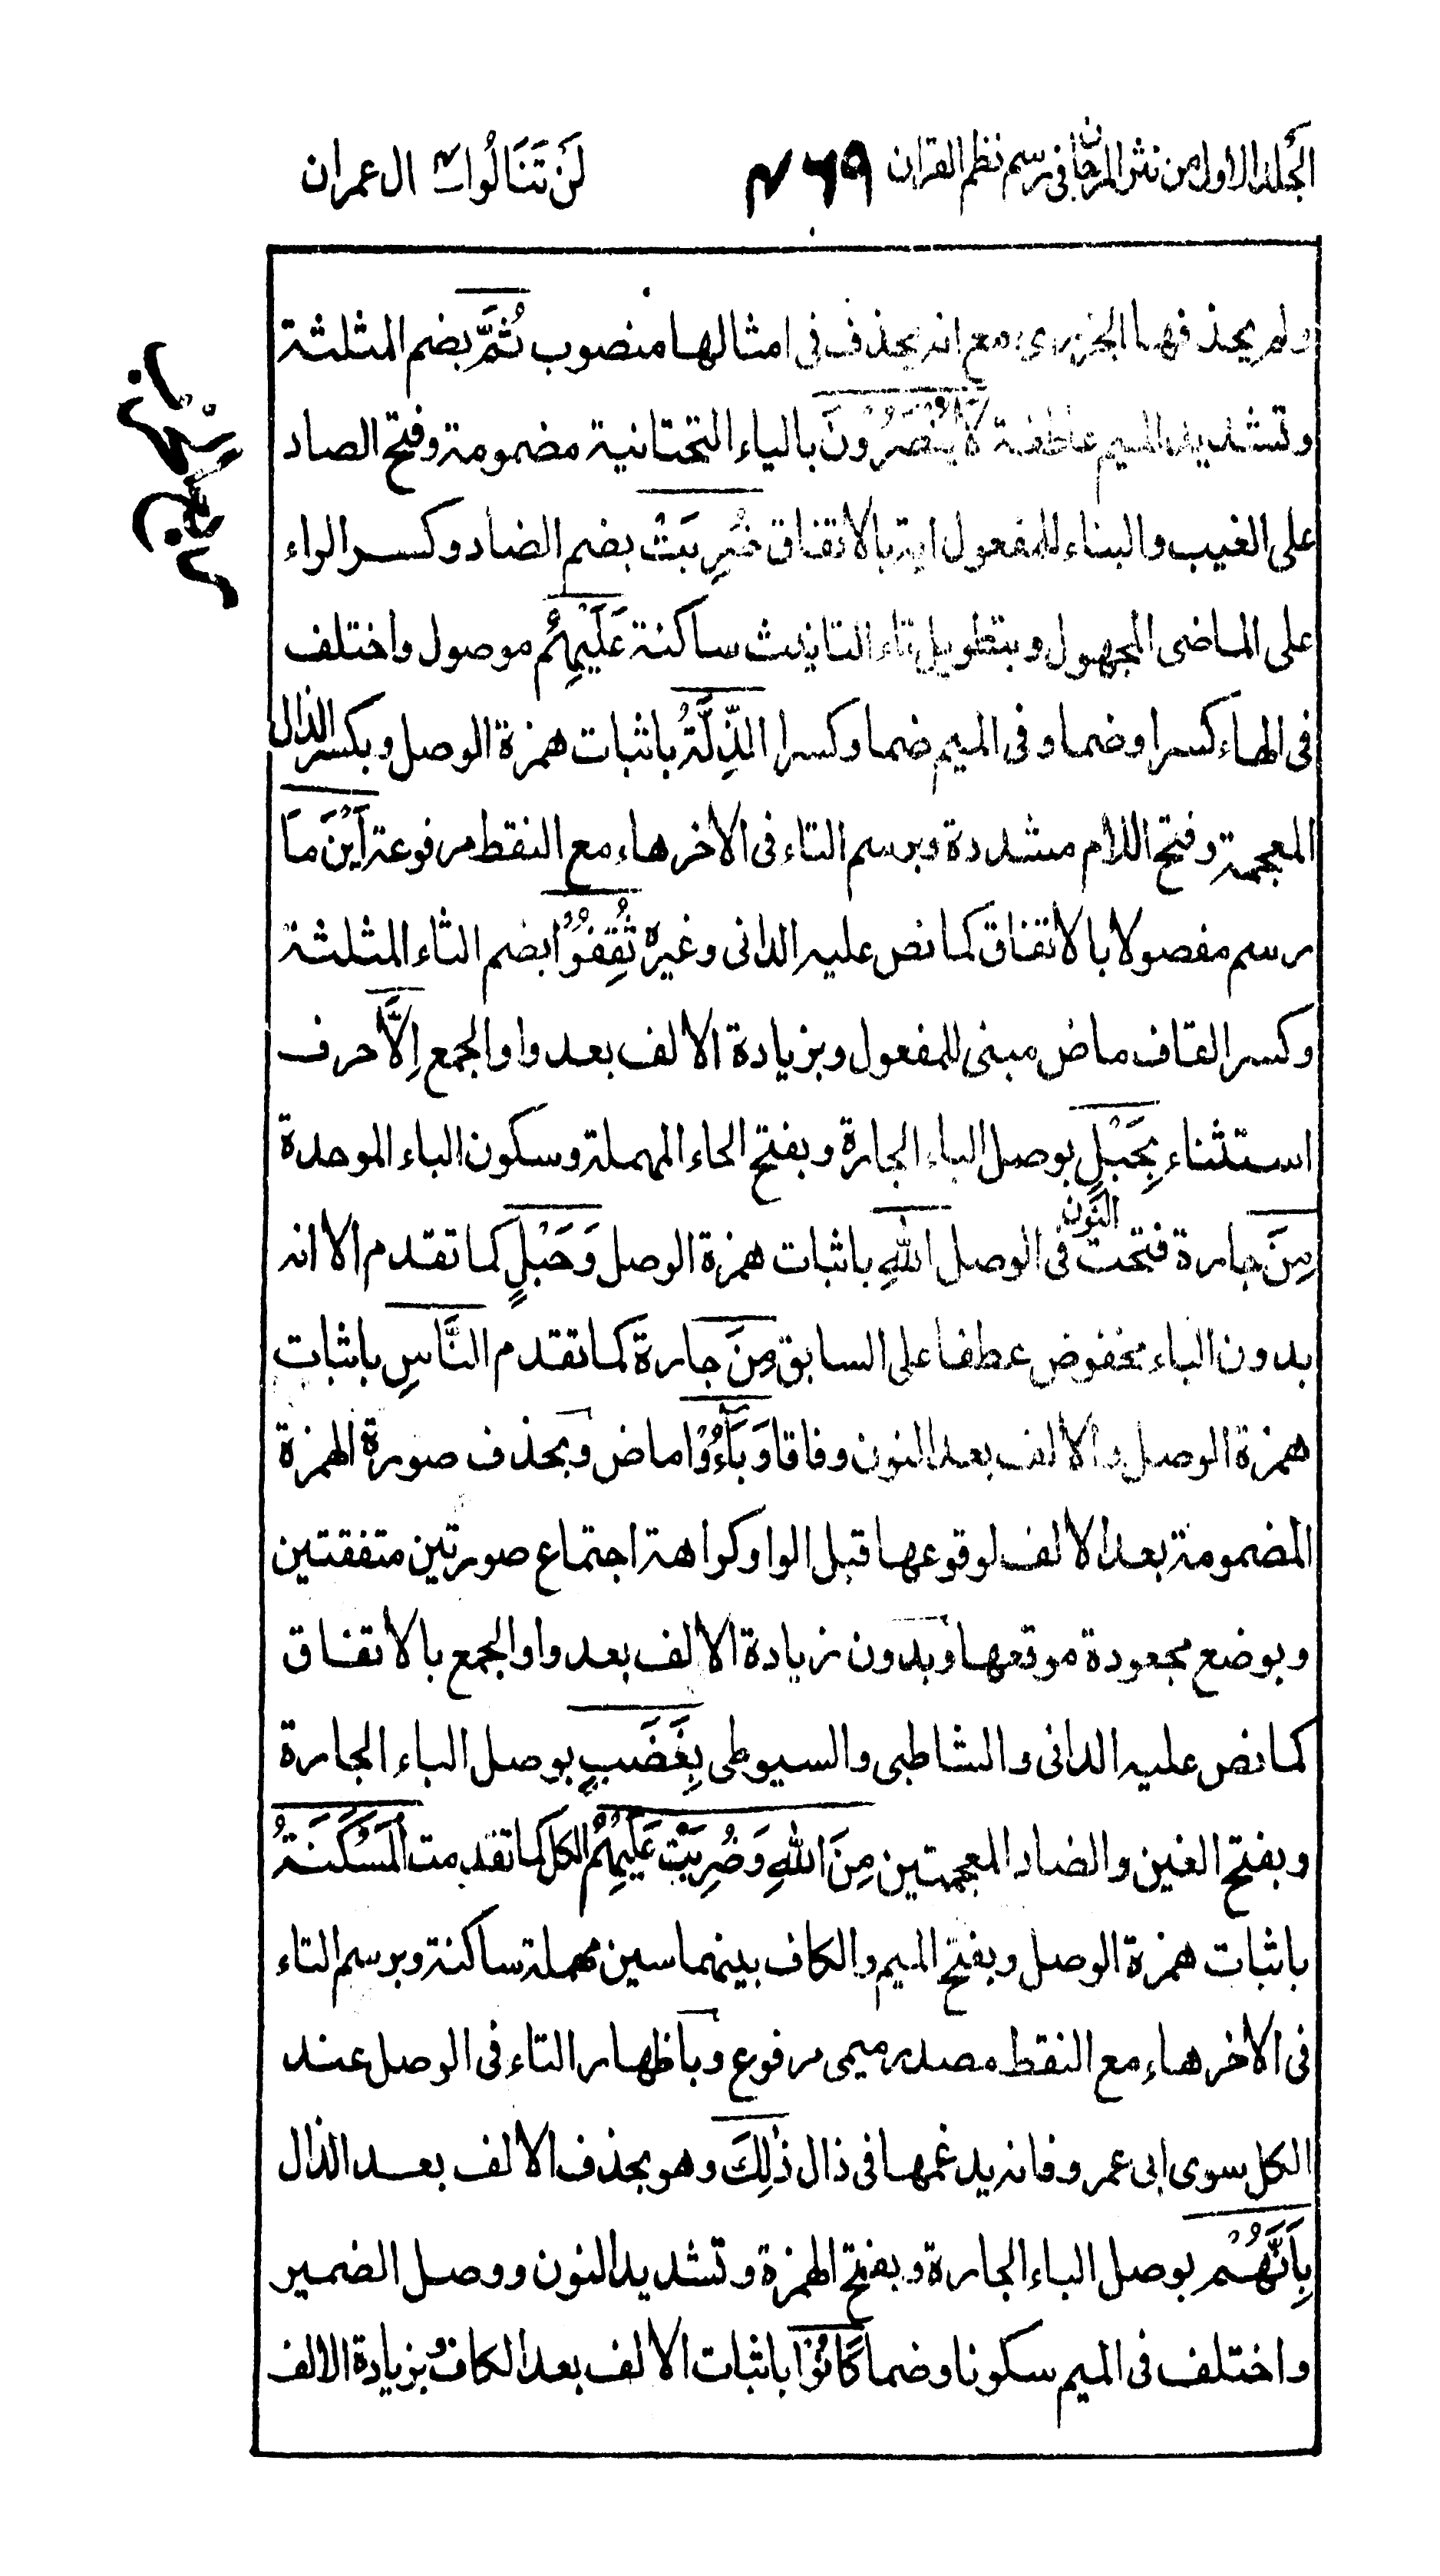 الجلد الاول من نثر المرجان فى رسم نظم القران ٤٦٩ لَنْ تَنَالُوا ٤ ال عمران
ولم يحذفها الجزرى مع انه يحذف فى امثالها منصوب ثُمَّ بضم المثلثة
وتشديد الميم عاطفة لَا يُنْصَرُوْنَ بالياء التحتانية مضمومة وفتح الصاد
على الغيب والبناء للمفعول اية بالاتفاق ضُرِبَتْ بضم الضاد وكسر الراء
على الماضى المجهول وبتطويل تاء التانيث ساكنة عَلَيْهِمُ موصول واختلف
فى الهاء كسرا وضما وفى الميم ضما وكسرا الذِّلَّةُ باثبات همزة الوصل وبكسر الذال
المعجمة وفتح اللام مشددة وبرسم التاء فى الاخر هاء مع النقط مرفوعة اَيْنَ مَا
رسم مفصولا بالاتفاق كما نص عليه الدانى وغيره ثُقِفُوْا بضم الثاء المثلثة
وكسر القاف ماض مبنى للمفعول وبزيادة الالف بعد واو الجمع اِلَّا حرف
استثناء بِحَبْلٍ بوصل الباء الجارة وبفتح الحاء المهملة وسكون الباء الموحدة
مِنَ جارة فتحت النون فى الوصل اللهِ باثبات همزة الوصل وَحَبْلٍ كما تقدم الا انه
بدون الباء مخفوض عطفا على السابق مِنَ جارة كما تقدم النَّاسِ باثبات
همزة الوصل والالف بعد النون وفاقا وَبَآءُوْ ماض وبحذف صورة الهمزة
المضمومة بعد الالف لوقوعها قبل الواو كراهة اجتماع صورتين متفقتين
وبوضع مجعودة موقعها وبدون زيادة الالف بعد واو الجمع بالاتفاق
كما نص عليه الدانى والشاطبى والسيوطى بِغَضَبٍ بوصل الباء الجارة
وبفتح الغين والضاد المعجمتين مِنَ اللهِ وَضُرِبَتْ عَلَيْهِمُ الكل كما تقدمت الْمَسْكَنَةُ
باثبات همزة الوصل وبفتح الميم والكاف بينهما سين مهملة ساكنة وبرسم التاء
فى الاخر هاء مع النقط مصدر ميمى مرفوع وباظهار التاء فى الوصل عند
الكل سوى ابى عمرو فانه يدغمها فى ذال ذٰلِكَ وهو بحذف الالف بعد الذال
بِاَنَّهُمْ بوصل الباء الجارة وبفتح الهمزة وتشديد النون ووصل الضمير
واختلف فى الميم سكونا وضما كَانُوْا باثبات الالف بعد الكاف وبزيادة الالف